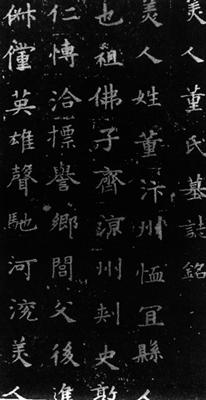 美人董氏墓誌銘
美人姓董汴州恤宜縣人
也祖佛子齊涼州刾史敦
仁博洽摽譽鄉閭父後進
俶儻英雄聲馳河渷美人